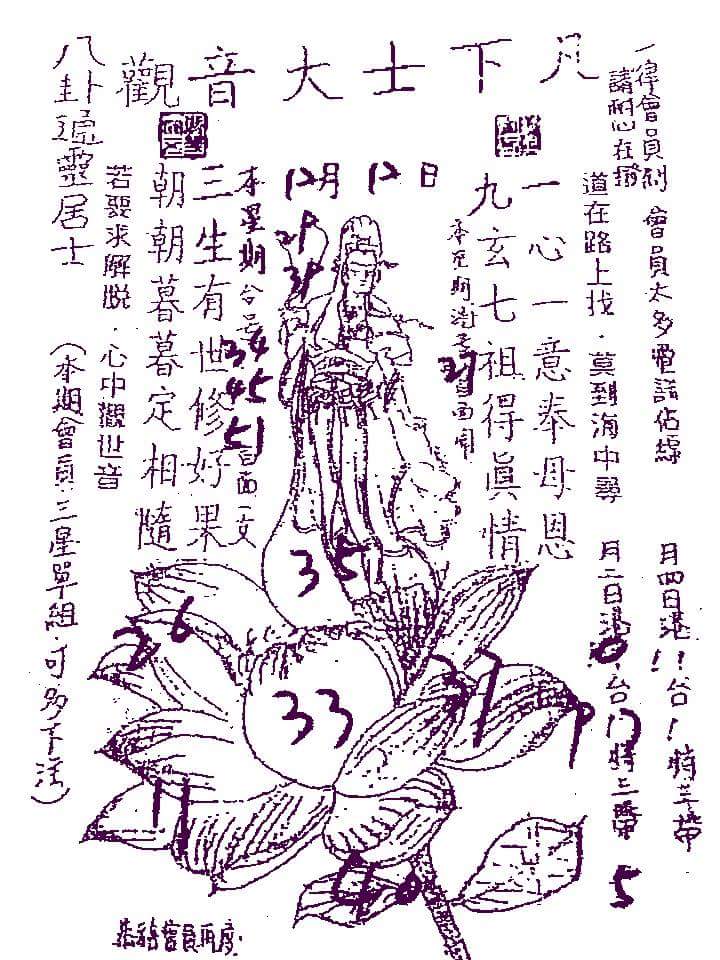 凡下士大音觀
一律會員到
請耐心在撥
會員太多電話佔線
道在路上找．莫到海中尋
一心一意奉母恩
九玄七祖得眞情
12月12日
29
39
本星期台号
34
45
51
三生有世修好果
朝朝暮暮定相隨
若要求解脱．心中觀世音
八卦通靈居士
(本期會員三星單組．可多下注)
月四日港!!台!特三帶
月二日港!0!台12特三帶
5
35
26
33
37
9
11
40